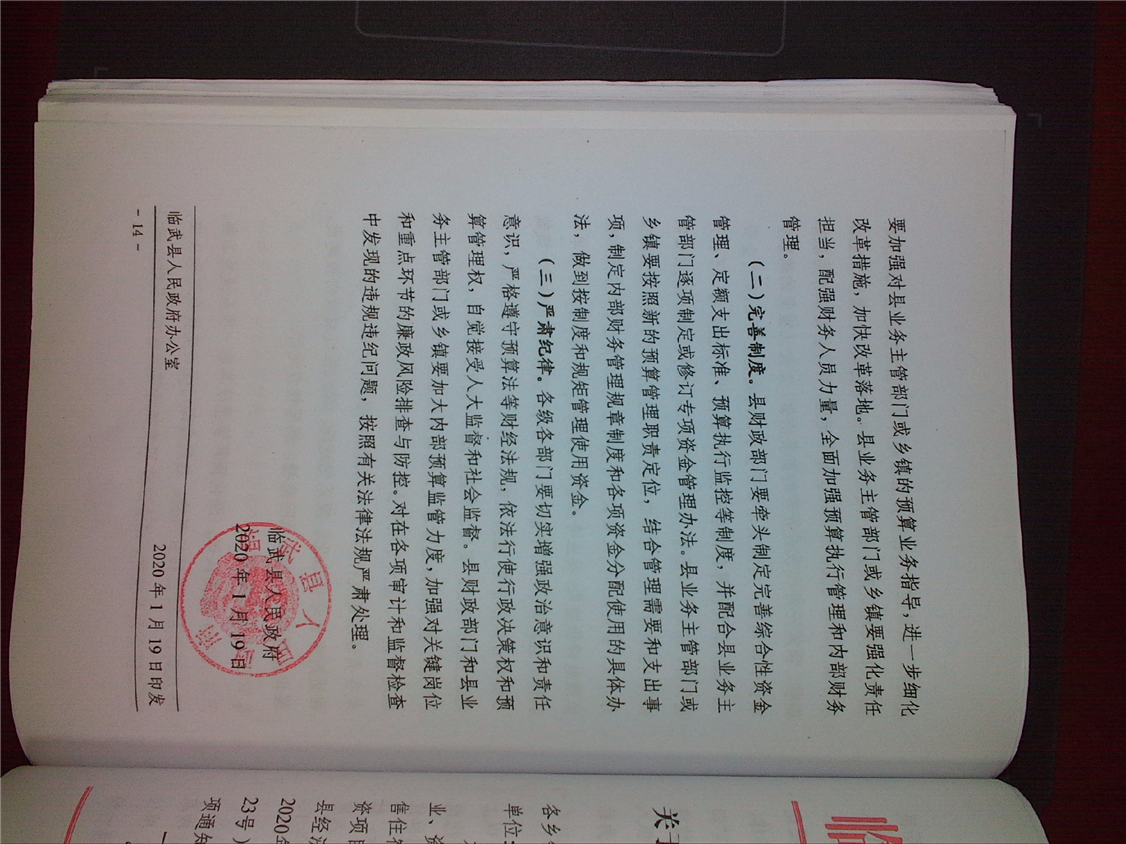 要加强对县业务主管部门或乡镇的预算业务指导,进一步细化
改革措施,加快改革落地。县业务主管部门或乡镇要强化责任
担当,配强财务人员力量,全面加强预算执行管理和内部财务
管理。
(二)完善制度。县财政部门要牵头制定完善综合性资金
管理、定额支出标准、预算执行监控等制度,并配合县业务主
管部门逐项制定或修订专项资金管理办法。县业务主管部门或
乡镇要按照新的预算管理职责定位,结合管理需要和支出事
项,制定内部财务管理规章制度和各项资金分配使用的具体办
法,做到按制度和规矩管理使用资金。
(三)严肃纪律。各级各部门要切实增强政治意识和责任
意识,严格遵守预算法等财经法规,依法行使行政决策权和预
算管理权,自觉接受人大监督和社会监督。县财政部门和县业
务主管部门或乡镇要加大内部预算监管力度,加强对关键岗位
和重点环节的廉政风险排查与防控。对在各项审计和监督检查
中发现的违规违纪问题,按照有关法律法规严肃处理。
临武县人民政府
2020年1月19日
临武县人民政府办公室 2020年1月19日印发
- 14 -
临
关于
各乡
单位:
业、资
售住
资项目
县经济
2020
23号)
项通知